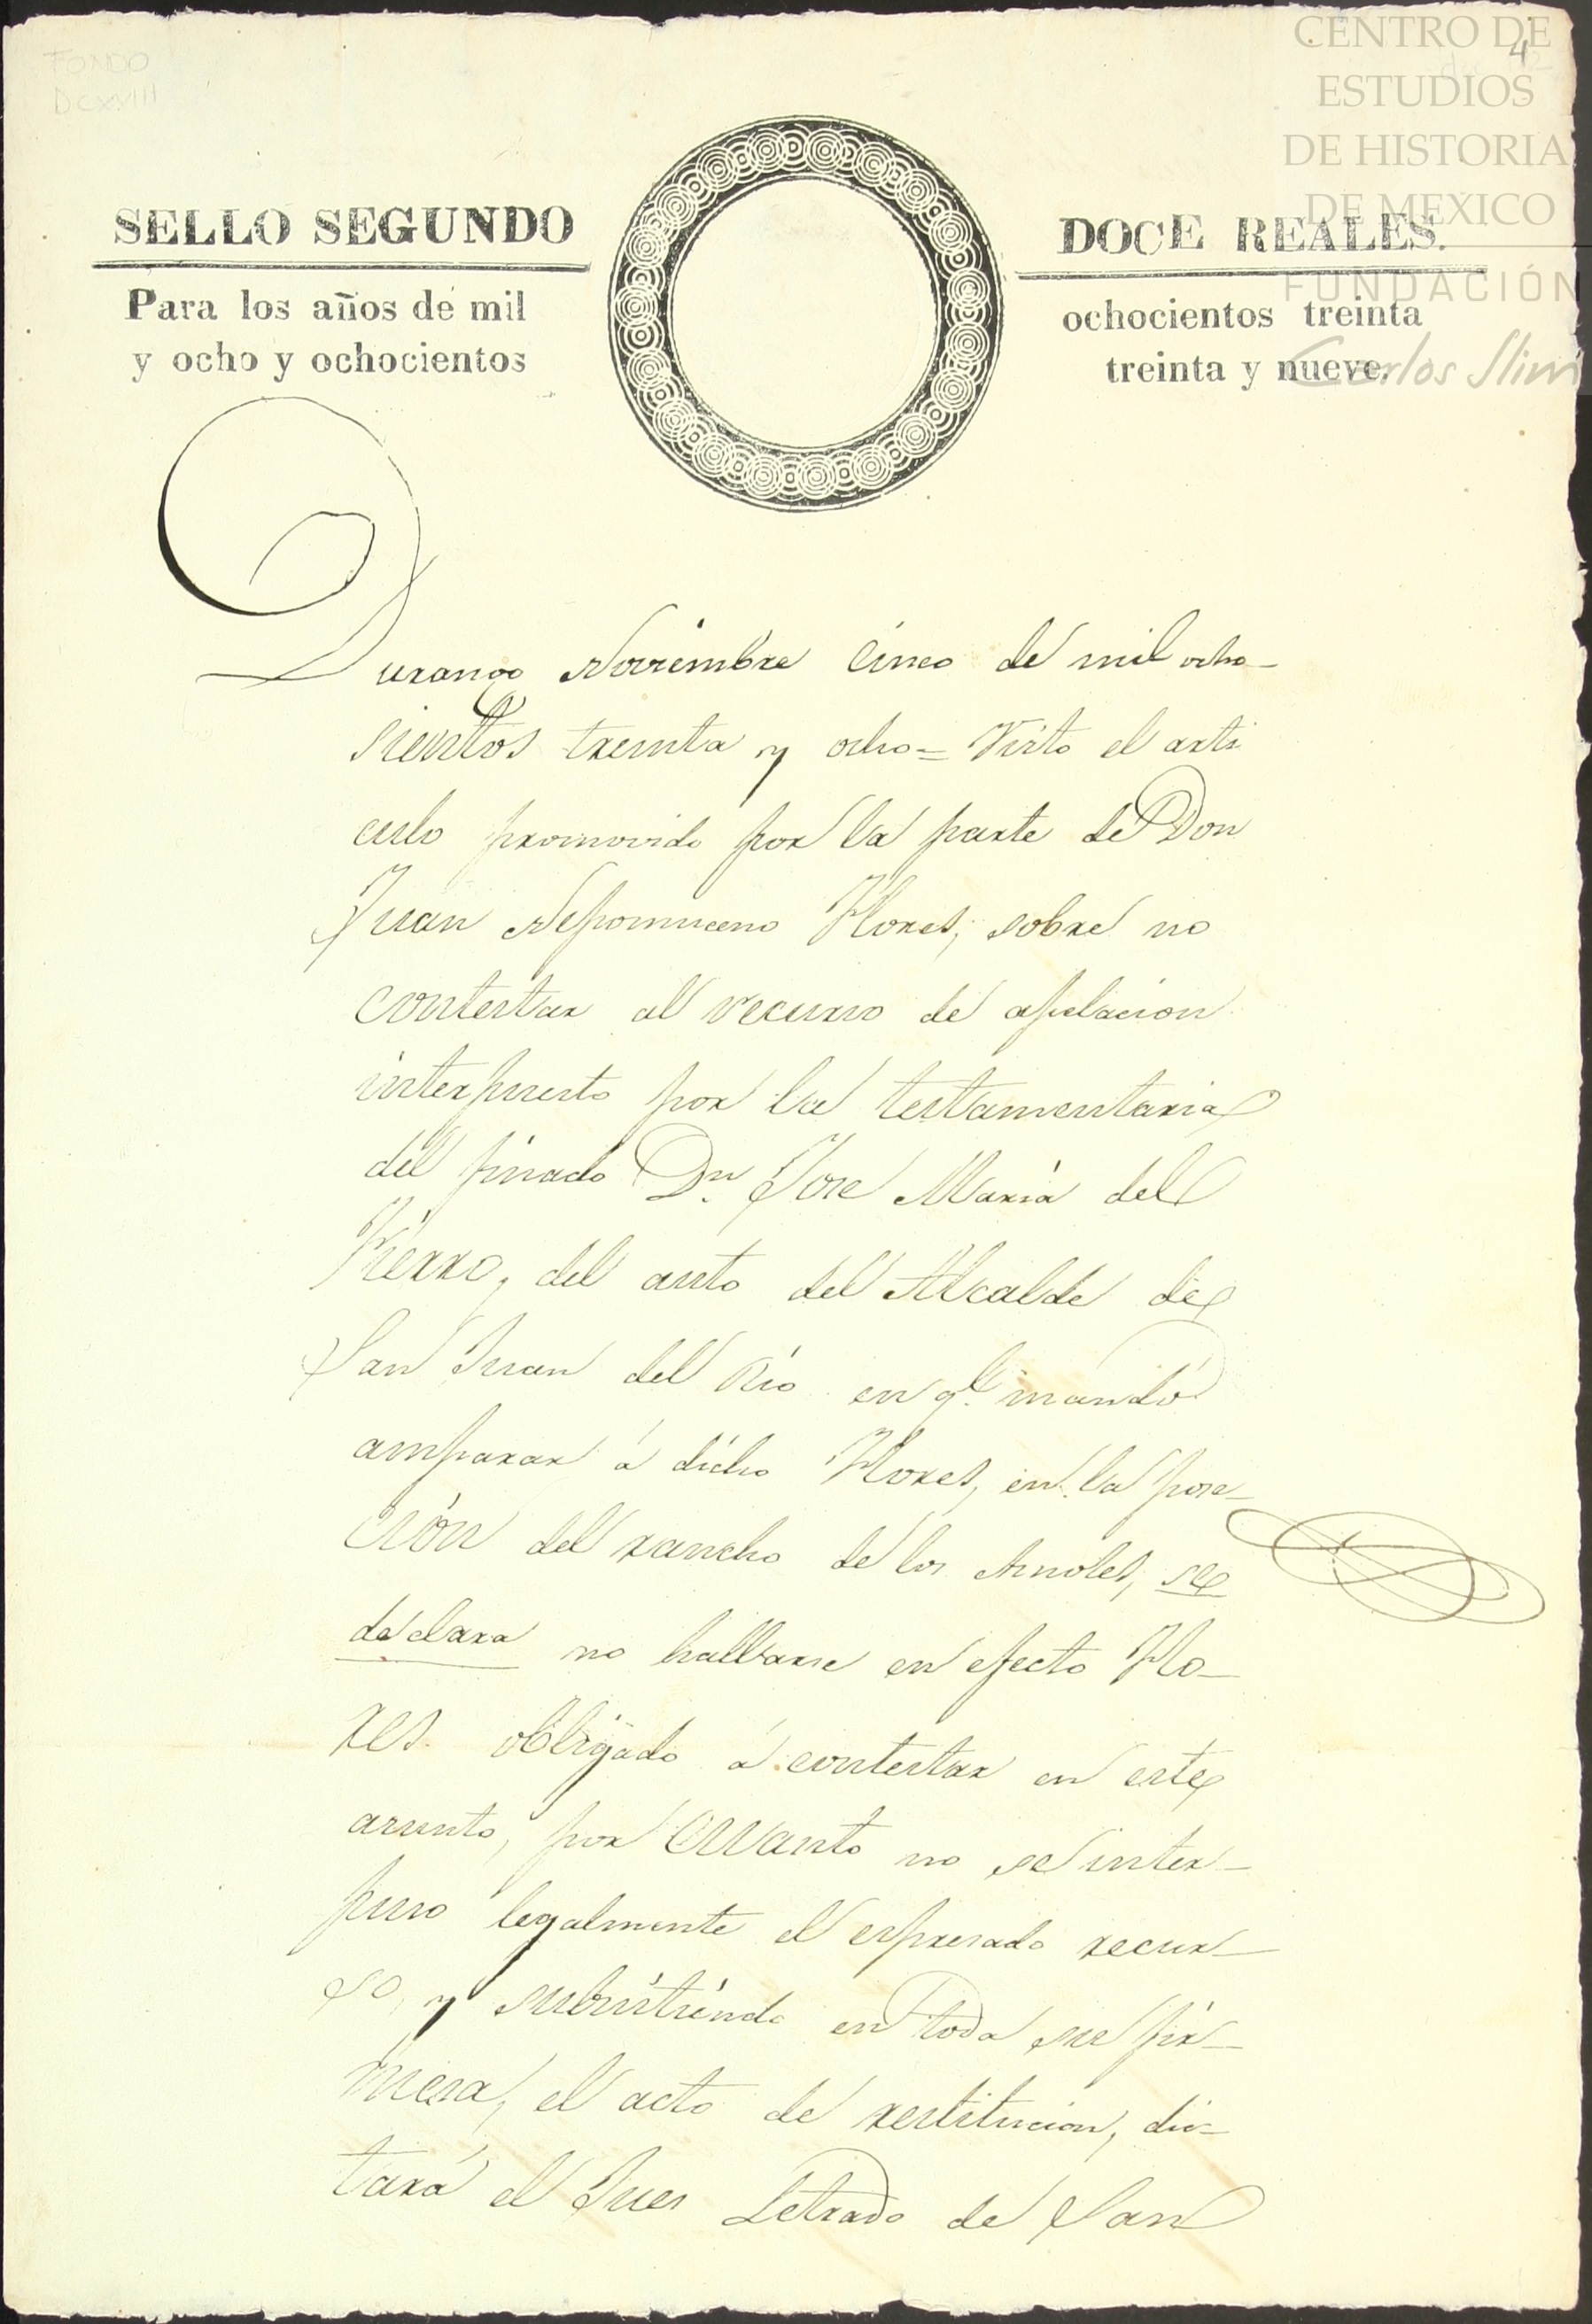 FONDO
DCXXVIII
4
CENTRO DE
ESTUDIOS
DE HISTORIA
DE MEXICO
FUNDACIÓN
Carlos Slim
SELLO SEGUNDO
DOCE REALES.
Para los años de mil
ochocientos treinta
y ocho y ochocientos
treinta y nueve.
Durango Noviembre cinco de mil ocho-
sientos treinta y ocho = Visto el arti
culo promovido por la parte de Don
Juan Nepomuceno Flores, sobre no
contestar al recurso de apelacion
interpuesto por la testamentaria
del finado Dn. Jose Maria del
Fierro, del auto del Alcalde de
San Juan del Rio en qe. mandó
amparar á dicho Flores, en la pose-
cion del rancho de los Amoles, se
declara no hallarse en efecto Flo-
res obligado á contestar en este
asunto, por cuanto no se inter-
puso legalmente el espresado recur-
so, y subsistiendo en toda su fir-
mesa, el acto de restitucion, dic-
tará el Jues Letrado de San